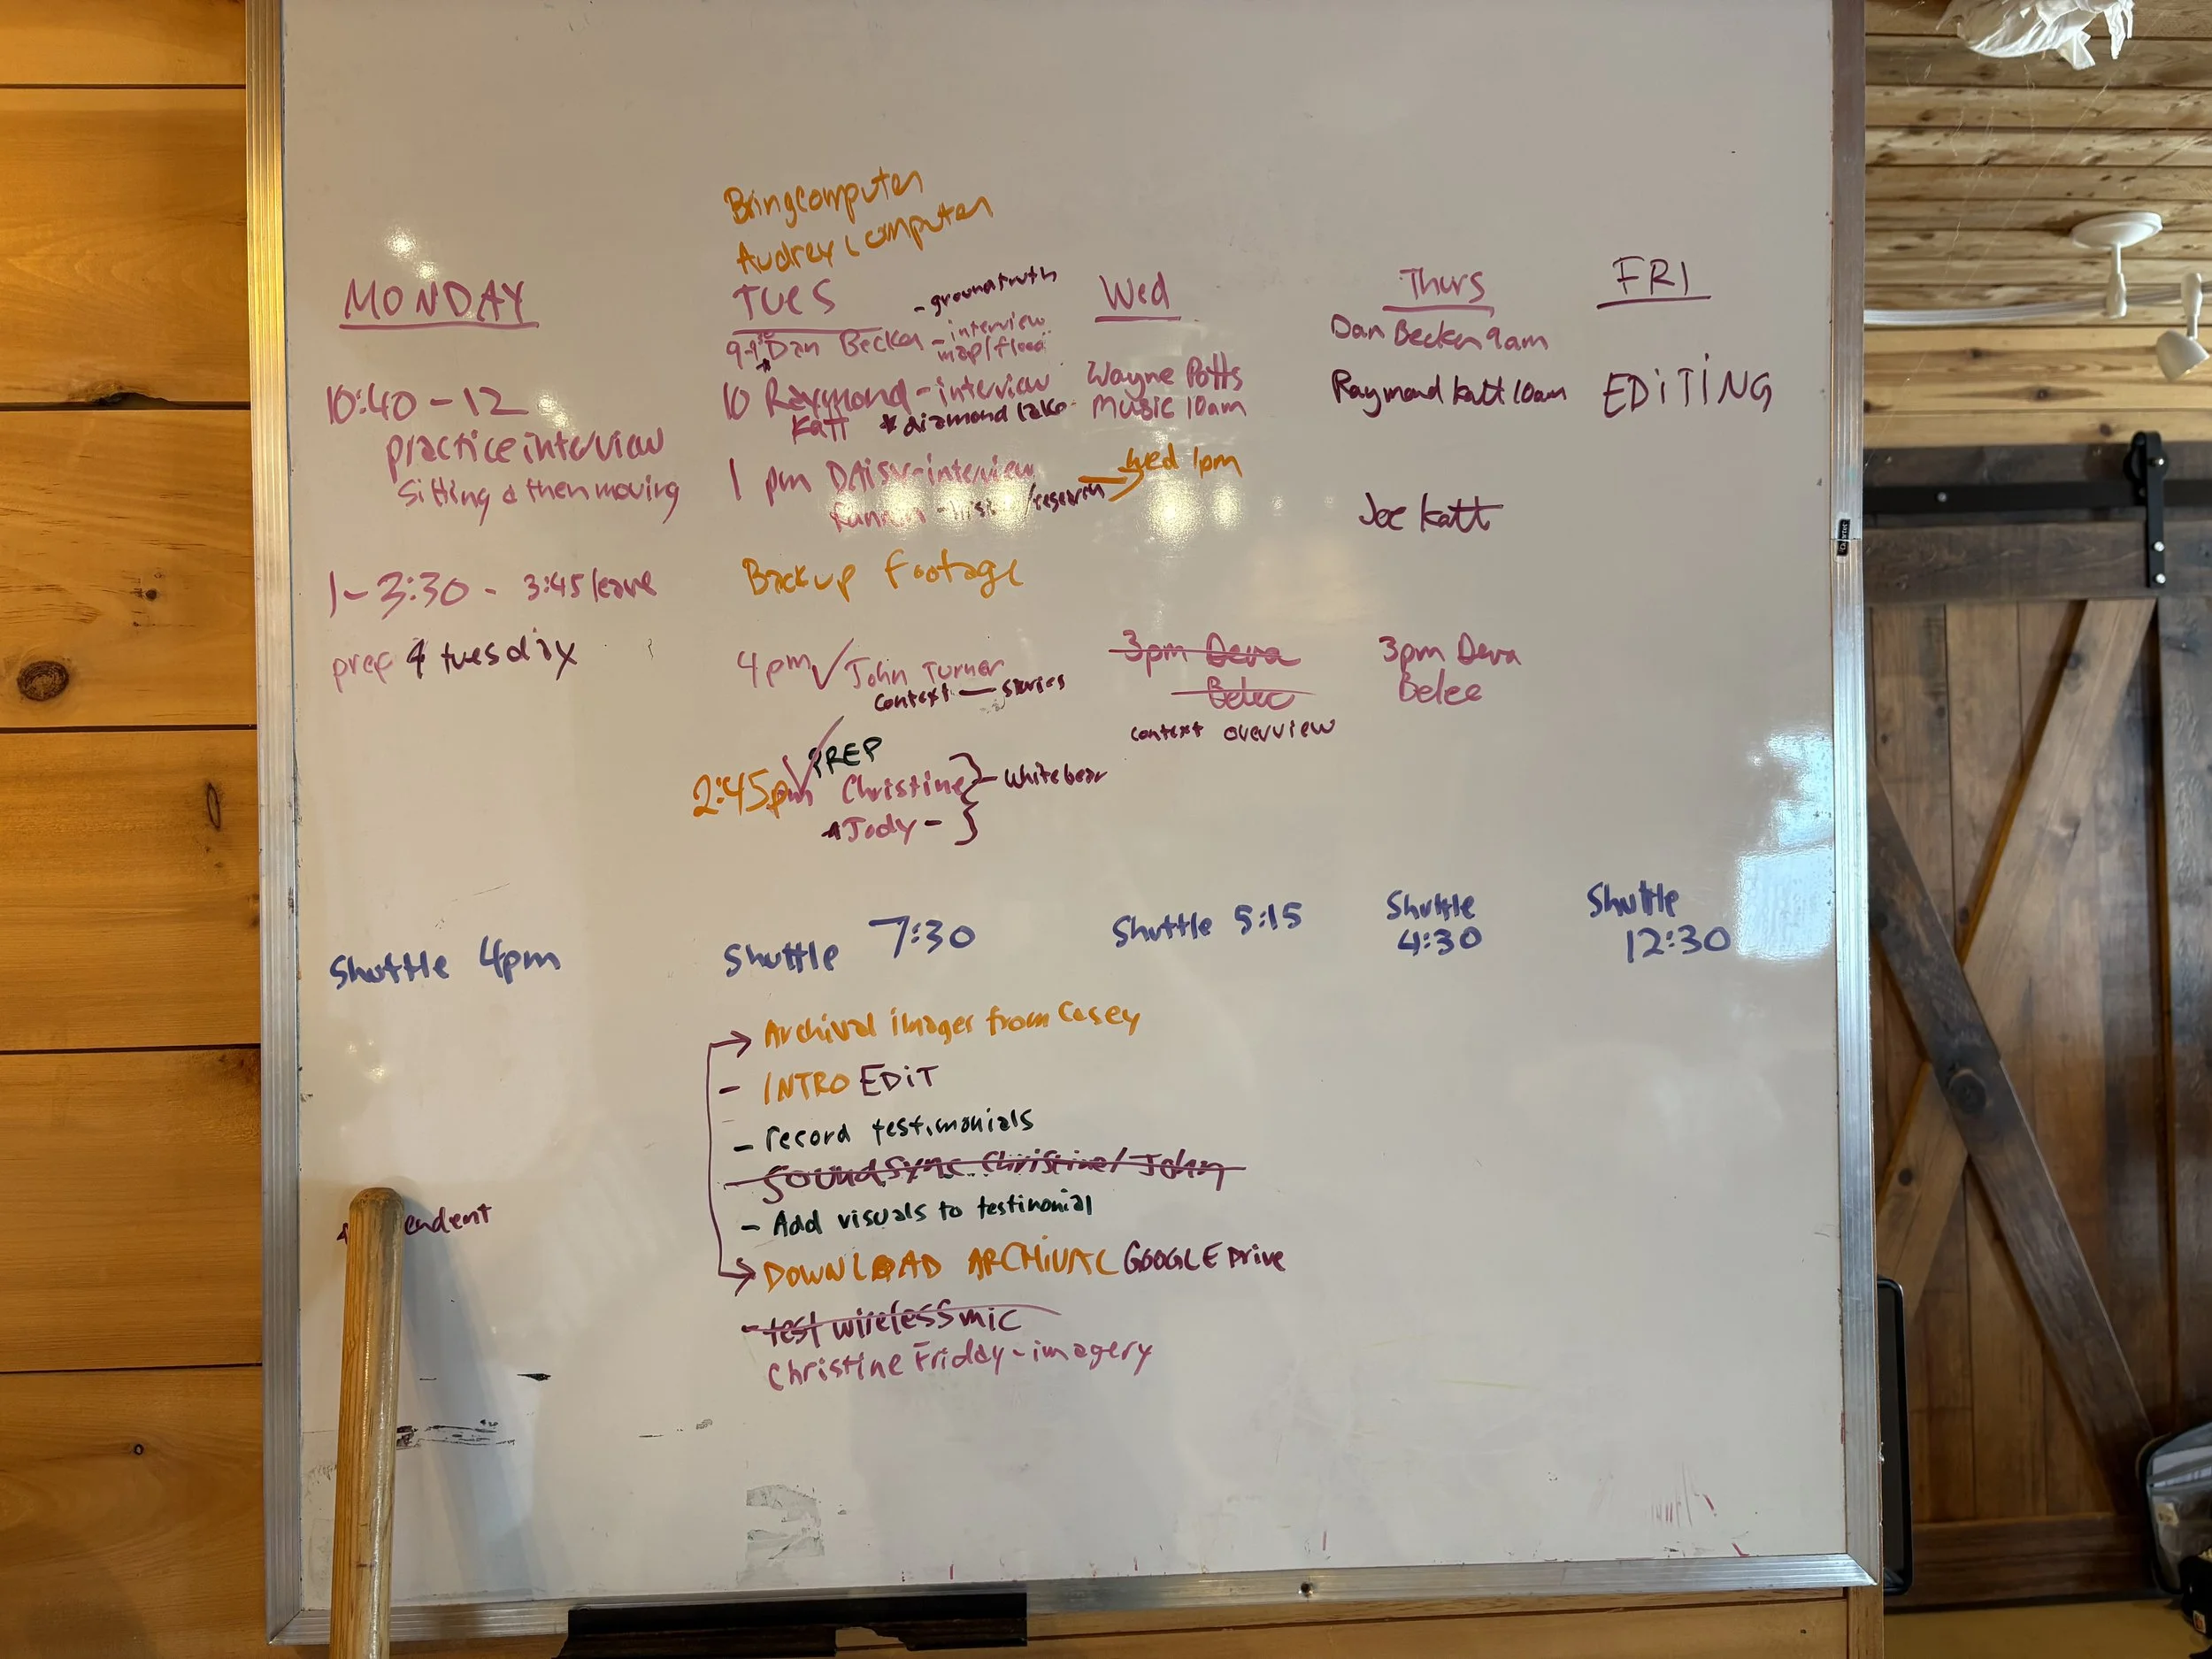 Bring computer
Audrey computer
MONDAY
10:40 - 12
practice interview
sitting & then moving
1 - 3:30 - 3:45 leave
prep 4 tuesday
Shuttle 4pm
endent
TUES
- groundtruth
Dan Becker - interview
map/flood
10 Raymond - interview
Katt * diamond lake
1 pm Daisy - interview
/research
→ Wed 1pm
Backup Footage
4pm ✓ John Turner
context — stories
PREP
2:45pm ✓ Christine } - Whitebear
Jody - }
Shuttle 7:30
Wed
Wayne Potts
Music 10am
3pm Deva
Belec
context overview
Shuttle 5:15
Thurs
Dan Becker 9am
Raymond Katt 10am
Joe Katt
3pm Deva
Belec
Shuttle
4:30
FRI
EDITING
Shuttle
12:30
→ Archival images from Casey
- INTRO EDIT
- record testimonials
- Sound Sync Christine/ John
- Add visuals to testimonial
→ DOWNLOAD ARCHIVAL GOOGLE Drive
- test wireless mic
Christine Friday - imagery